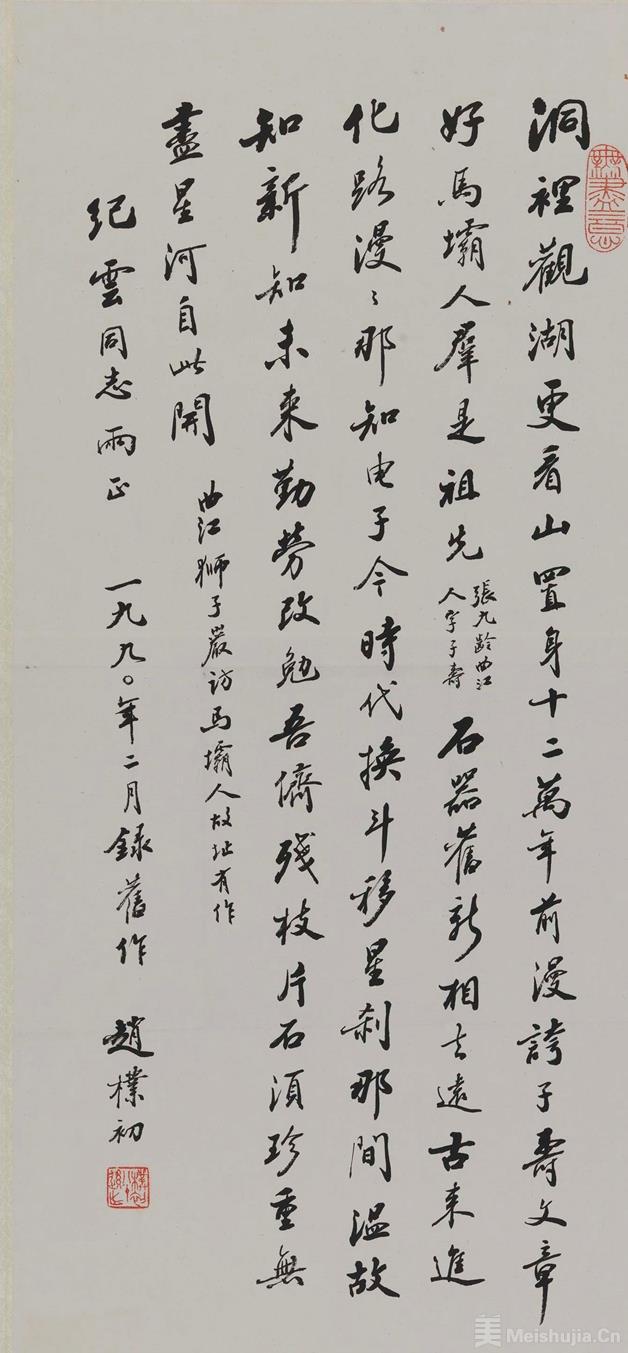 洞裡觀湖更看山置身十二萬年前漫誇子壽文章
好馬壩人羣是祖先
張九齡曲江
人字子壽
石器舊新相去遠古来進
化路漫〻那知电子今時代換斗移星刹那間温故
知新知未来勤勞改勉吾儕殘枝片石須珍重無
盡星河自此開
曲江獅子巖訪馬壩人故址有作
紀雲同志兩正
一九九〇年二月錄舊作
趙樸初
無盡意
美 Meishujia.Cn